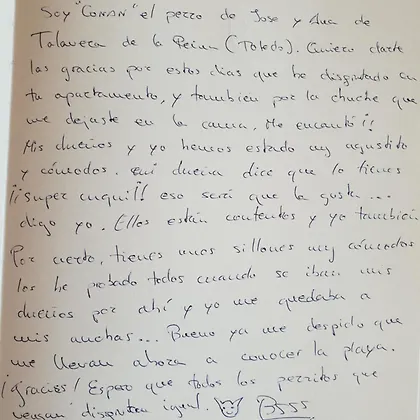 Soy "CONAN" el perro de Jose y Ana de
Talavera de la Reina (Toledo). Quiero darte
las gracias por estos días que he disfrutado en
tu apartamento, y también por la chuche que
me dejaste en la cama. Me encantó!!
Mis dueños y yo hemos estado muy agustito
y cómodos. mi dueña dice que lo tienes
¡¡super cuqui!! eso será que la gusta...
digo yo. Ellos están contentos y yo también.
Por cierto, tienes unos sillones muy cómodos
los he probado todos cuando se iban mis
dueños por ahí y yo me quedaba a
mis anchas... Bueno ya me despido que
me llevan ahora a conocer la playa.
¡Gracias! Espero que todos los perritos que
vengan disfruten igual. Bsss